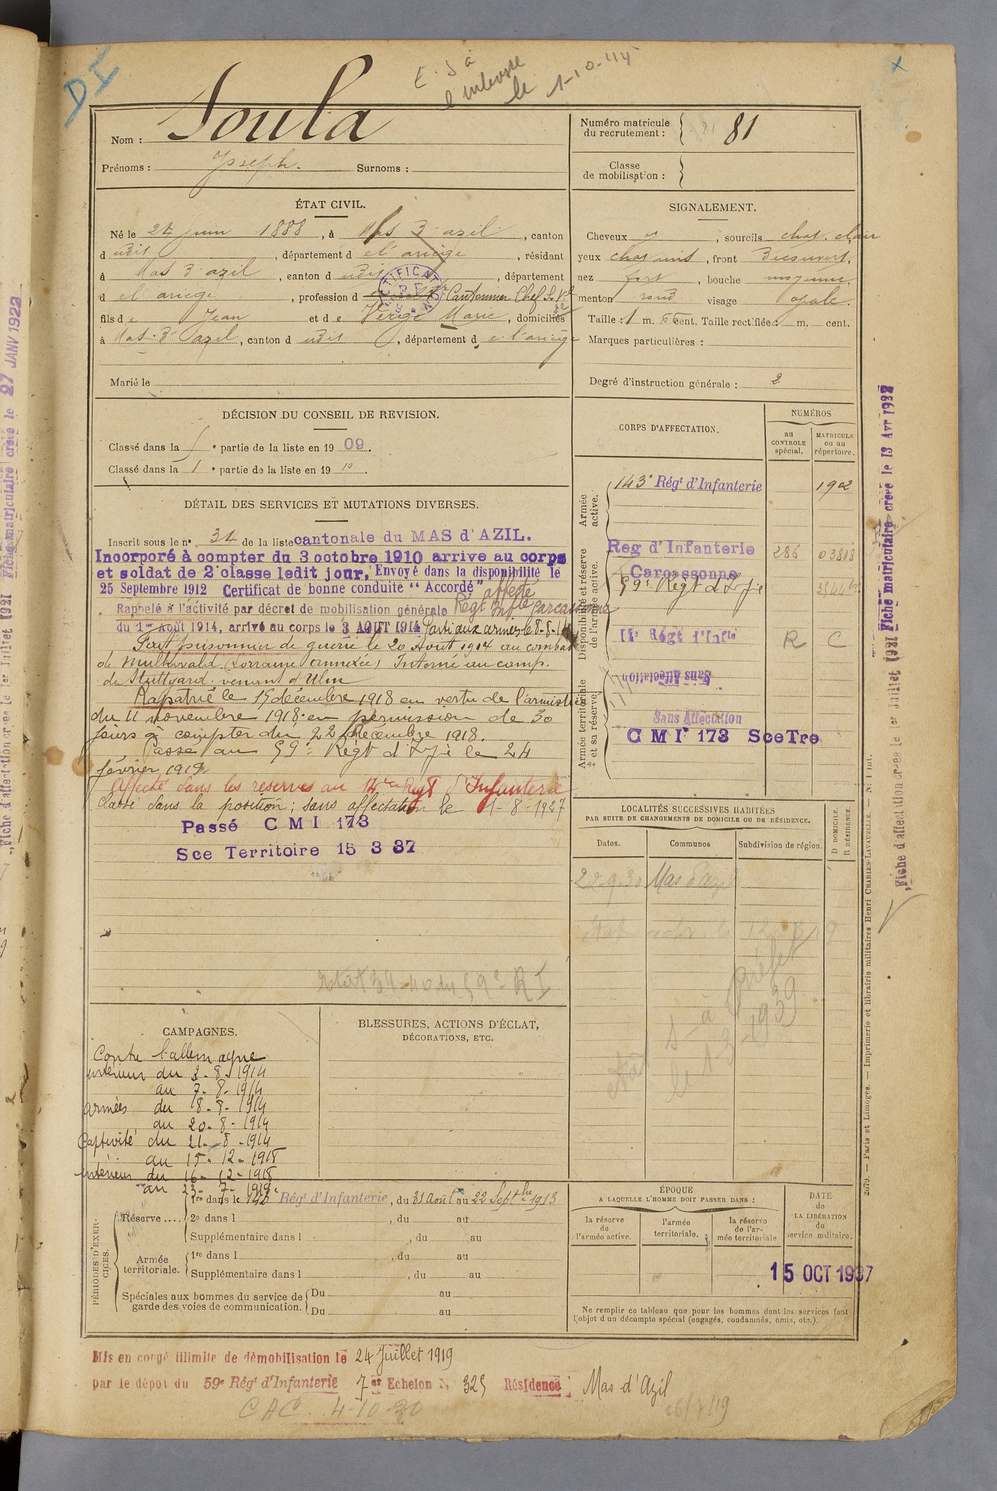 DI
E. S à
le 1-10-45
Nom : Soula
Prénoms : Joseph. Surnoms :
Numéro matricule du recrutement : 81
Classe de mobilisation :
ÉTAT CIVIL.
Né le 22 juin 1888, à Mas d'azil, canton
d udit, département d el ariège, résidant
à Mas d'azil, canton d udit, département
d el ariège, profession d Cantonnier Chef
fils d e Jean et d e Marie, domiciliés
à Mas-d'Azil, canton d udit, département d e l'ariège
Marié le
SIGNALEMENT.
Cheveux, sourcils chat. clair
yeux, front découvert,
nez fort, bouche moyenne,
menton rond visage ovale.
Taille : 1 m. 66 cent. Taille rectifiée : m. cent.
Marques particulières :
Degré d'instruction générale : 2
DÉCISION DU CONSEIL DE REVISION.
Classé dans la ᵉ partie de la liste en 19 09.
Classé dans la 1 ᵉ partie de la liste en 19 10.
DÉTAIL DES SERVICES ET MUTATIONS DIVERSES.
Inscrit sous le nº 34 de la liste cantonale du MAS d'AZIL.
Incorporé à compter du 3 octobre 1910 arrive au corps
et soldat de 2e classe ledit jour. Envoyé dans la disponibilité le
25 Septembre 1912 Certificat de bonne conduite "Accordé" affecté
Rappelé à l'activité par décret de mobilisation générale Régt Infie Carcassonne
du 1er Août 1914, arrivé au corps le 3 AOUT 1914 Parti aux armées le 8-8-14
Fait prisonnier de guerre le 20 Août 1914 au combat
de (Lorraine annexée) Interné au camp.
de Stuttgard venant d'Ulm
Rapatrié le 15 décembre 1918 en vertu de l'armistice
du 11 novembre 1918. en permission de 30
jours à compter du 22 décembre 1918.
Passé au 59e Régt d'Infie le 24
février 1919.
Affecté dans les réserves au 14e Regt d'Infanterie
Classé dans la position : sans affectation le 1-8-1927
Passé C M I 173
Sce Territoire 15 3 37
CORPS D'AFFECTATION.
NUMÉROS
au CONTROLE spécial.
MATRICULE ou au répertoire.
Armée active.
143e Régt d'Infanterie 1902
Disponibilité et réserve de l'armée active.
Reg d'Infanterie 286 03818
Carcassonne
59e Régt d'Infie
14e Régt d'Infie R C
Armée territoriale et sa réserve.
Sans Affectation
Sans Affectation
C M Ie 173 Sce Tre
LOCALITÉS SUCCESSIVES HABITÉES
PAR SUITE DE CHANGEMENTS DE DOMICILE OU DE RÉSIDENCE.
Dates. Communes Subdivision de région.
D DOMICILE. R RÉSIDENCE.
28-9-30 Mas d'Azil
1-3-1939
CAMPAGNES.
Contre l'allemagne
Intérieur du 3-8-1914
au 7-8-1914
armées du 18-8-1914
au 20-8-1914
Captivité du 21-8-1914
au 15-12-1918
Intérieur du 16-12-1918
au 23-7-1919
BLESSURES, ACTIONS D'ÉCLAT,
DÉCORATIONS, ETC.
PÉRIODES D'EXERCICES.
Réserve .... 1re dans le 143e Régt d'Infanterie, du 31 Août au 22 Septbre 1913
2e dans l , du au
Supplémentaire dans l , du au
Armée territoriale. 1re dans l , du au
Supplémentaire dans l , du au
Spéciales aux hommes du service de garde des voies de communication. Du au
Du au
ÉPOQUE
A LAQUELLE L'HOMME DOIT PASSER DANS :
la réserve de l'armée active.
l'armée territoriale.
la réserve de l'armée territoriale
DATE de LA LIBÉRATION du service militaire.
15 OCT 1937
Ne remplir ce tableau que pour les hommes dont les services font
l'objet d'un décompte spécial (engagés, condamnés, omis, etc.).
Mis en congé illimité de démobilisation le 24 Juillet 1919
par le dépôt du 59e Régt d'Infanterie 7er Echelon N° 325 Résidence : Mas d'Azil
CAC 4-10-30
26/7/19
Fiche matriculaire créée le 27 JANV 1922
Fiche d'affectation créée le 1er Juillet 1921
Fiche matriculaire créée le 13 Avr 1922
Fiche d'affectation créée le 1er Juillet 1921
2679. — Paris et Limoges. — Imprimerie et librairie militaires Henri CHARLES-LAVAUZELLE.